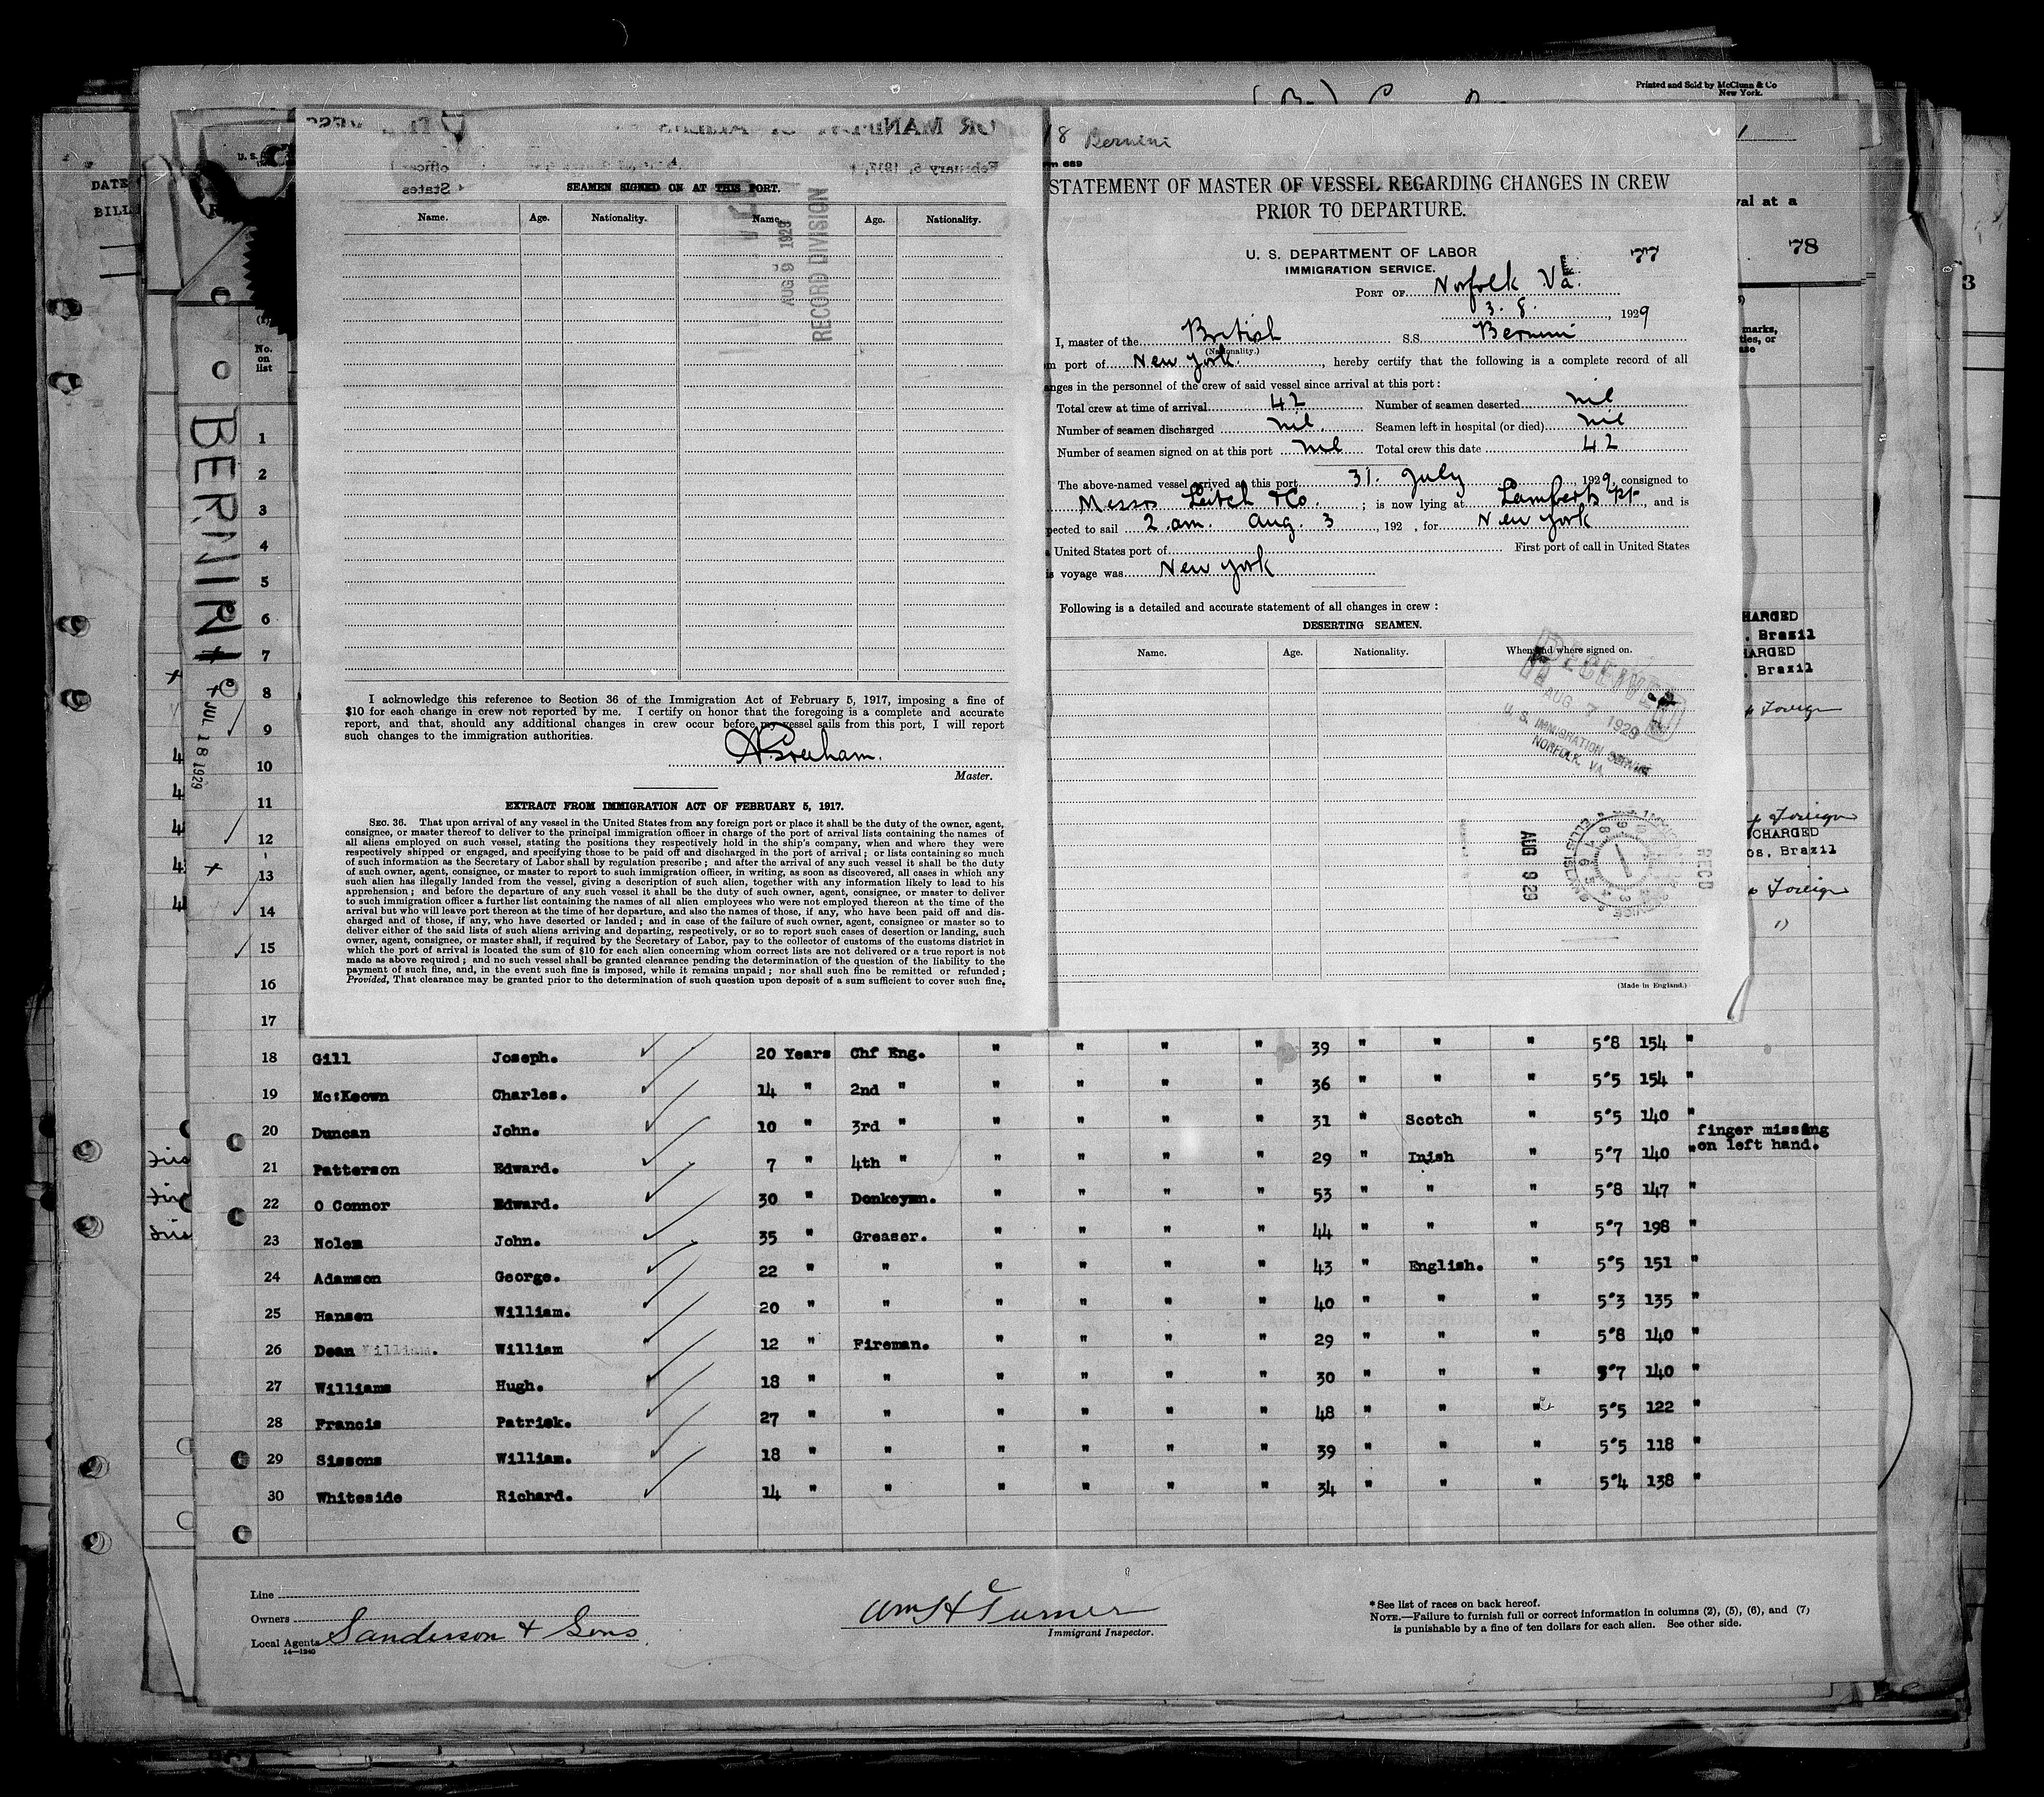 Printed and Sold by McClunn & Co
New York.
U. S.
DATE
BILL
SEAMEN SIGNED ON AT THIS PORT.
Name. Age. Nationality. Name. Age. Nationality.
AUG 9 1929
RECORD DIVISION
I acknowledge this reference to Section 36 of the Immigration Act of February 5, 1917, imposing a fine of
$10 for each change in crew not reported by me. I certify on honor that the foregoing is a complete and accurate
report, and that, should any additional changes in crew occur before my vessel sails from this port, I will report
such changes to the immigration authorities.
Master.
EXTRACT FROM IMMIGRATION ACT OF FEBRUARY 5, 1917.
SEC. 36. That upon arrival of any vessel in the United States from any foreign port or place it shall be the duty of the owner, agent,
consignee, or master thereof to deliver to the principal immigration officer in charge of the port of arrival lists containing the names of
all aliens employed on such vessel, stating the positions they respectively hold in the ship's company, when and where they were
respectively shipped or engaged, and specifying those to be paid off and discharged in the port of arrival; or lists containing so much
of such information as the Secretary of Labor shall by regulation prescribe; and after the arrival of any such vessel it shall be the duty
of such owner, agent, consignee, or master to report to such immigration officer, in writing, as soon as discovered, all cases in which any
such alien has illegally landed from the vessel, giving a description of such alien, together with any information likely to lead to his
apprehension; and before the departure of any such vessel it shall be the duty of such owner, agent, consignee, or master to deliver
to such immigration officer a further list containing the names of all alien employees who were not employed thereon at the time of the
arrival but who will leave port thereon at the time of her departure, and also the names of those, if any, who have been paid off and dis-
charged and of those, if any, who have deserted or landed; and in case of the failure of such owner, agent, consignee or master so to
deliver either of the said lists of such aliens arriving and departing, respectively, or so to report such cases of desertion or landing, such
owner, agent, consignee, or master shall, if required by the Secretary of Labor, pay to the collector of customs of the customs district in
which the port of arrival is located the sum of $10 for each alien concerning whom correct lists are not delivered or a true report is not
made as above required; and no such vessel shall be granted clearance pending the determination of the question of the liability to the
payment of such fine, and, in the event such fine is imposed, while it remains unpaid; nor shall such fine be remitted or refunded;
Provided, That clearance may be granted prior to the determination of such question upon deposit of a sum sufficient to cover such fine,
18 Bernini
rm 689
STATEMENT OF MASTER OF VESSEL REGARDING CHANGES IN CREW
PRIOR TO DEPARTURE.
U. S. DEPARTMENT OF LABOR
IMMIGRATION SERVICE.
77
PORT OF Norfolk Va.
3. 8. , 1929
I, master of the British S.S. Bernini
(Nationality.)
m port of New York. , hereby certify that the following is a complete record of all
anges in the personnel of the crew of said vessel since arrival at this port:
Total crew at time of arrival 42 Number of seamen deserted nil
Number of seamen discharged nil. Seamen left in hospital (or died) nil
Number of seamen signed on at this port nil Total crew this date 42
The above-named vessel arrived at this port 31. July , 1929, consigned to
Messrs Leitch & Co. ; is now lying at Lamberts pt. , and is
pected to sail 2 am. Aug. 3 , 192 , for New York
United States port of First port of call in United States
is voyage was New York
Following is a detailed and accurate statement of all changes in crew:
DESERTING SEAMEN.
Name. Age. Nationality. When and where signed on.
RECEIVED
AUG 7 1929
U. S. IMMIGRATION SERVICE
NORFOLK, VA.
AUG 9 29
RECD
(Made in England.)
val at a
78
3
marks,
HARGED
. Brazil
HARGED
. Brazil
Foreign
Foreign
CHARGED
os, Brazil
Foreign
BERNINI
JUL 18 1929
No.
on
list
1
2
3
4
5
6
7
8
9
10
11
12
13
14
15
16
17
18 Gill Joseph. 20 Years Chf Eng. " " " " 39 " " " 5"8 154 "
19 Mc:Keown Charles. 14 " 2nd " " " " " 36 " " " 5"5 154 "
20 Duncan John. 10 " 3rd " " " " " 31 " Scotch " 5"5 140 "
21 Patterson Edward. 7 " 4th " " " " " 29 " Inish " 5"7 140 " finger missing on left hand.
22 O Connor Edward. 30 " Donkeymn. " " " " 53 " " " 5"8 147 "
23 Nolem John. 35 " Greaser. " " " " 44 " " " 5"7 198 "
24 Adamson George. 22 " " " " " " 43 " English. " 5"5 151 "
25 Hansen William. 20 " " " " " " 40 " " " 5"3 135 "
26 Dean William. William 12 " Fireman. " " " " 29 " " " 5"8 140 "
27 Williams Hugh. 18 " " " " " " 30 " " " 5"7 140 "
28 Francis Patrick. 27 " " " " " " 48 " " " 5"5 122 "
29 Sissons William. 18 " " " " " " 39 " " " 5"5 118 "
30 Whiteside Richard. 14 " " " " " " 34 " " " 5"4 138 "
Line
Owners
Local Agents Sanderson & Sons
14—1240
Wm H Turner
Immigrant Inspector.
* See list of races on back hereof.
NOTE.—Failure to furnish full or correct information in columns (2), (5), (6), and (7)
is punishable by a fine of ten dollars for each alien. See other side.